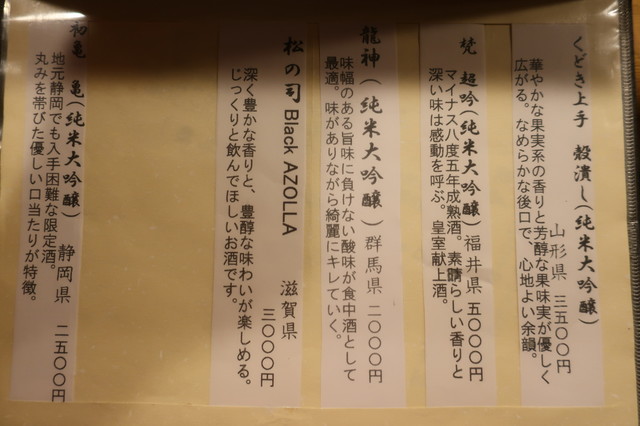 くどき上手　殻潰し（純米大吟醸）
山形県　三五００円
華やかな果実系の香りと芳醇な果味実が優しく
広がる。なめらかな後口で、心地よい余韻。
梵　超吟（純米大吟醸）福井県　五０００円
マイナス八度五年成熟酒。素晴らしい香りと
深い味は感動を呼ぶ。皇室献上酒。
龍神（純米大吟醸）群馬県　二０００円
味幅のある旨味に負けない酸味が食中酒として
最適。味がありながら綺麗にキレていく。
松の司 Black AZOLLA　滋賀県
三０００円
深く豊かな香りと、豊醇な味わいが楽しめる。
じっくりと飲んでほしいお酒です。
初亀　亀（純米大吟醸）静岡県　二五００円
地元静岡でも入手困難な限定酒。
丸みを帯びた優しい口当たりが特徴。